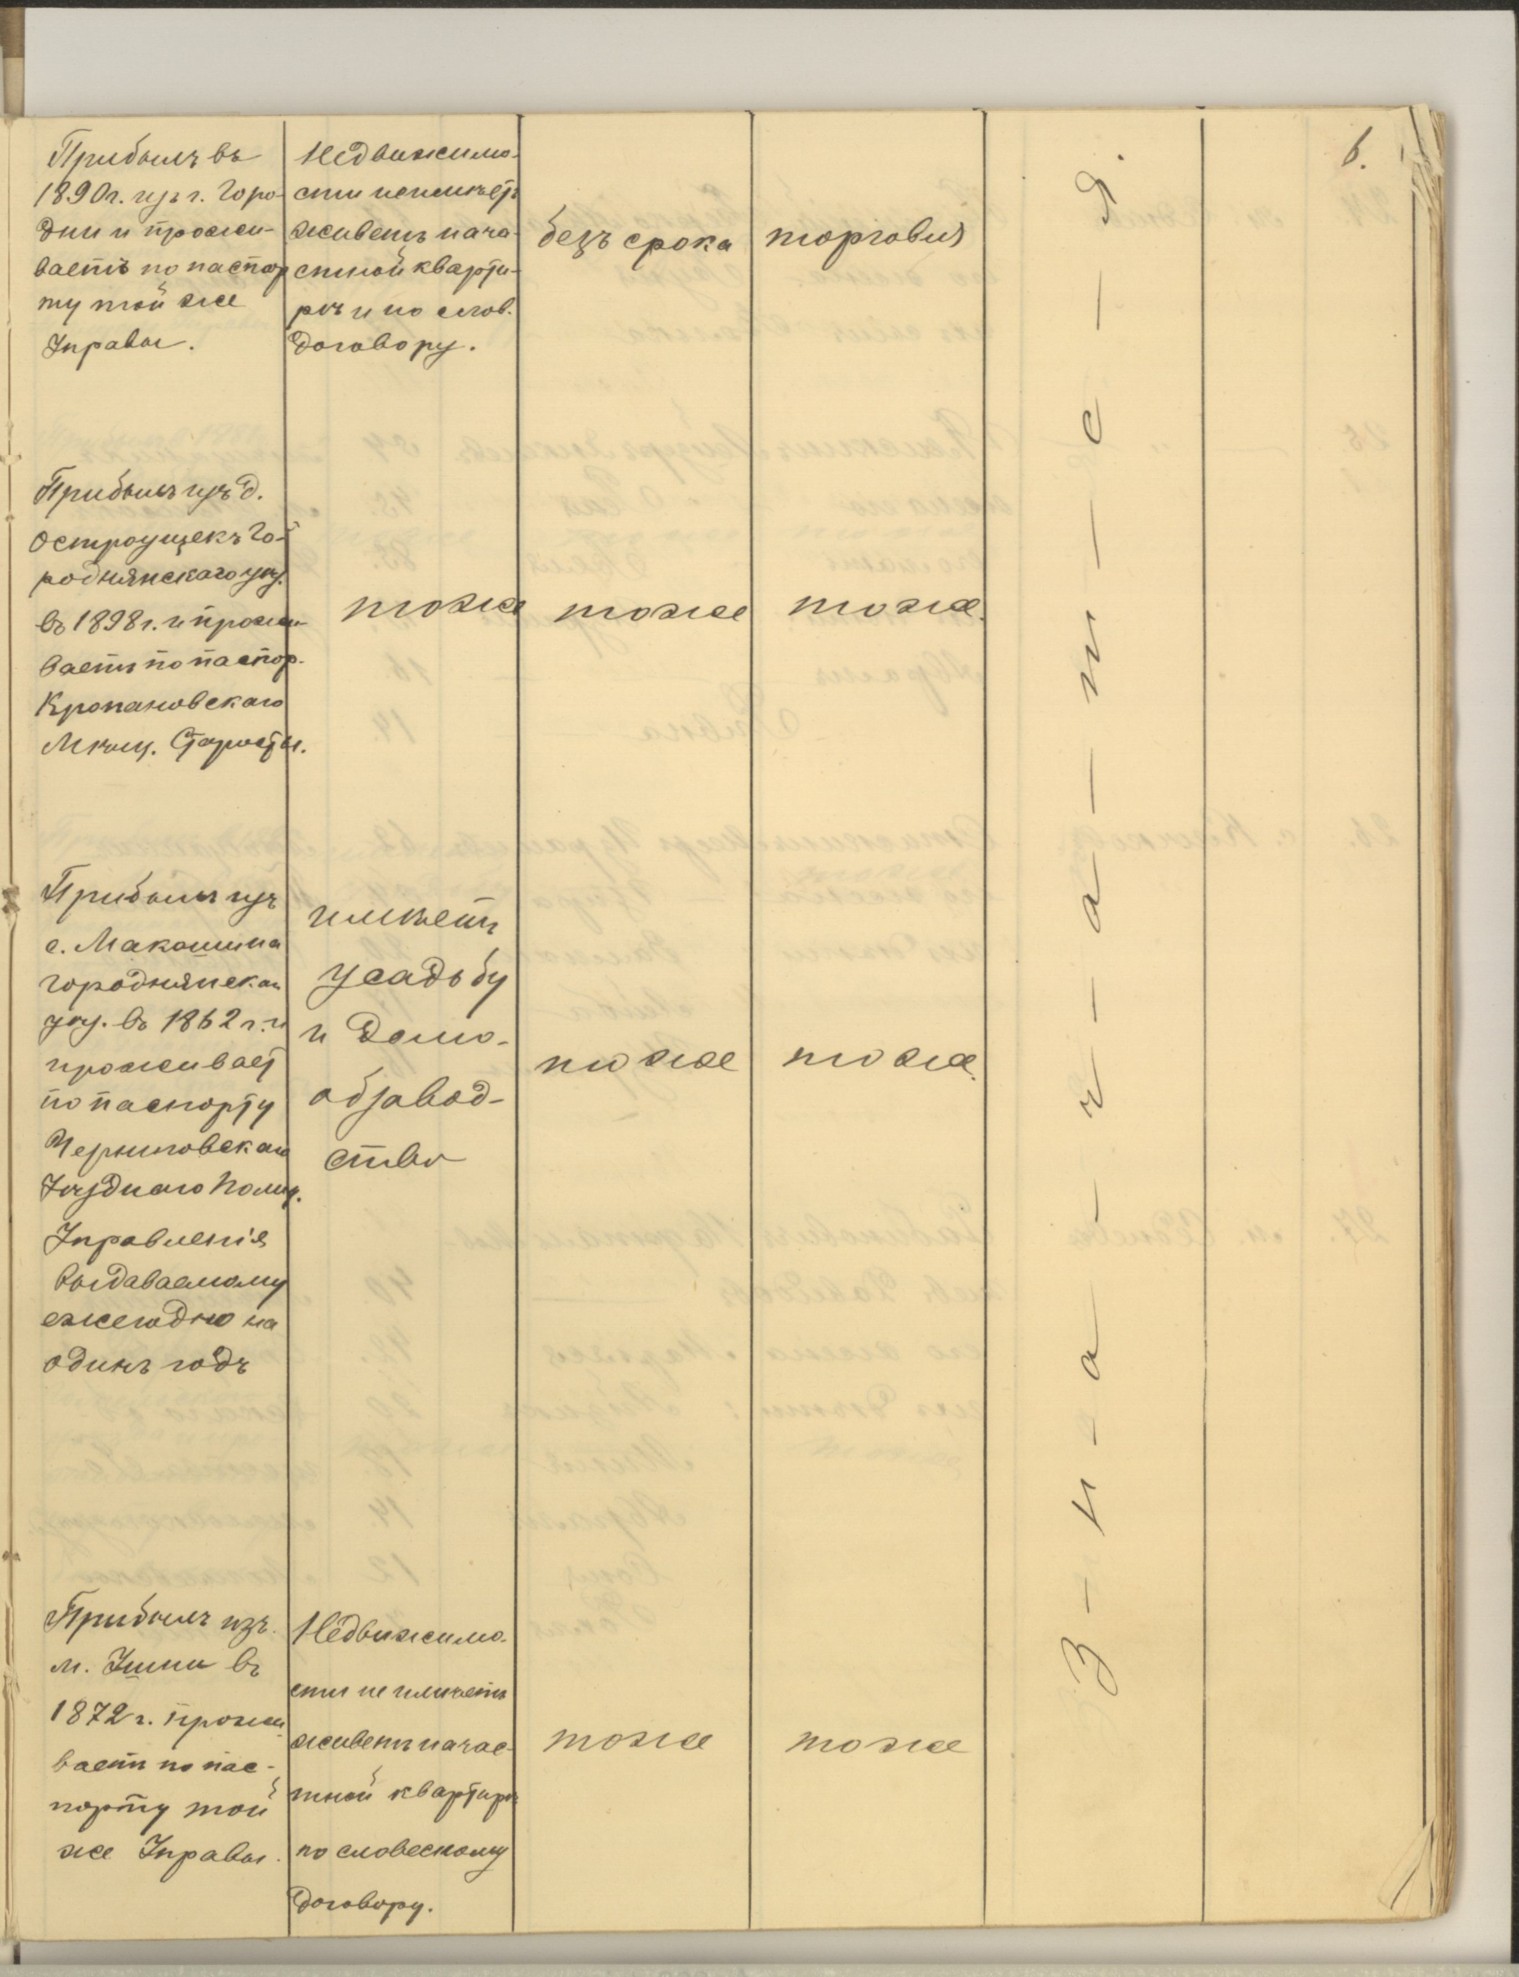 6.
Прибылъ въ
1890 г. изъ г. Горо-
дни и прожи-
ваетъ по паспор
ту той же
Управы.
Недвижимо-
сти неимѣетъ
живетъ на ча-
стной кварти-
рѣ и по слов.
договору.
безъ срока
торговля
Прибылъ изъ д.
Остроущекъ Го-
роднянскаго уѣз.
въ 1898 г. и прожи-
ваетъ по паспор.
Мѣщ. Старосты.
тоже
тоже
тоже.
Прибылъ изъ
с. Макошина
Городнянскаго
уѣз. въ 1862 г. и
проживаетъ
по паспорту
Черниговскаго
Уѣзднаго Полиц.
Управленія
выдаваемому
ежегодно на
одинъ годъ
имѣетъ
усадьбу
и домо-
обзавод-
ство
тоже
тоже.
Прибылъ изъ
м. въ
1872 г. прожи
ваетъ по пас-
порту той
же Управы.
Недвижимо-
сти не имѣетъ
живетъ на час-
тной квартирѣ
по словескому
договору.
тоже
тоже
З-н-а-ч-а-т-с-я.